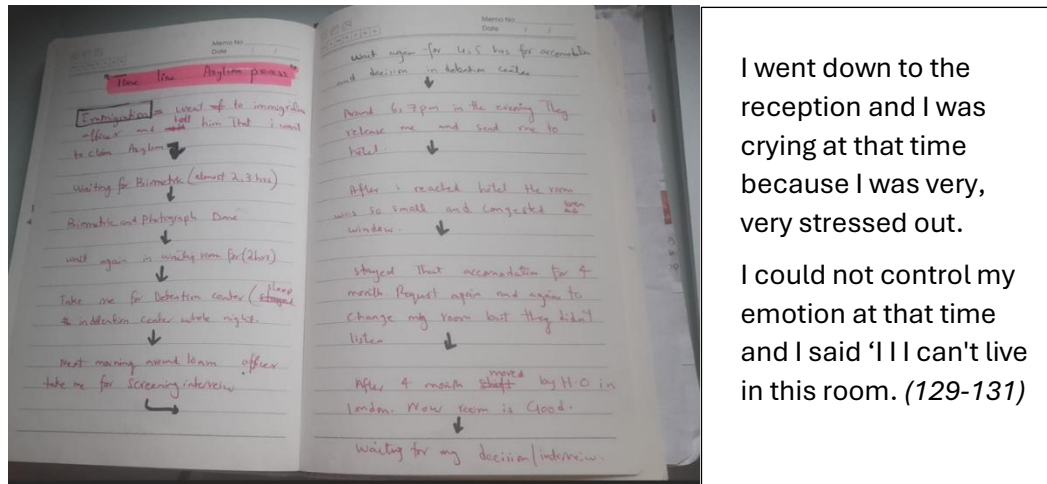 Memo No
Date / /
"Time line Asylum process"
Immigration = went to immigration
officer and tell him That i want
to claim Asylum
Waiting for Biometric (almost 2,3 hrs)
Biometric and Photograph Done
wait again in waiting room for (2 hrs)
Take me for Detention center ( sleep
in detention center whole night.
Next morning around 10am officer
take me for screening interview
Memo No
Date / /
Wait again for 4,5 hrs for accomodation
and decision in detention center
Around 6,7pm in the evening They
release me and send me to
hotel.
After i reached hotel the room
was so small and congested even
no window.
stayed That accomodation for 4
month Request again and again to
change my room but they didn't
listen
After 4 month moved by H.O in
london. Now room is Good.
Waiting for my decision/interview.
I went down to the
reception and I was
crying at that time
because I was very,
very stressed out.
I could not control my
emotion at that time
and I said ‘I I I can't live
in this room. (129-131)